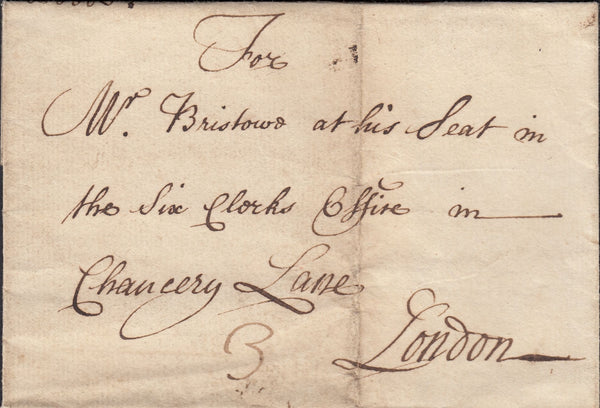 For
Mr. Bristowe at his Seat in
the Six Clerks Office in
Chancery Lane
3
London